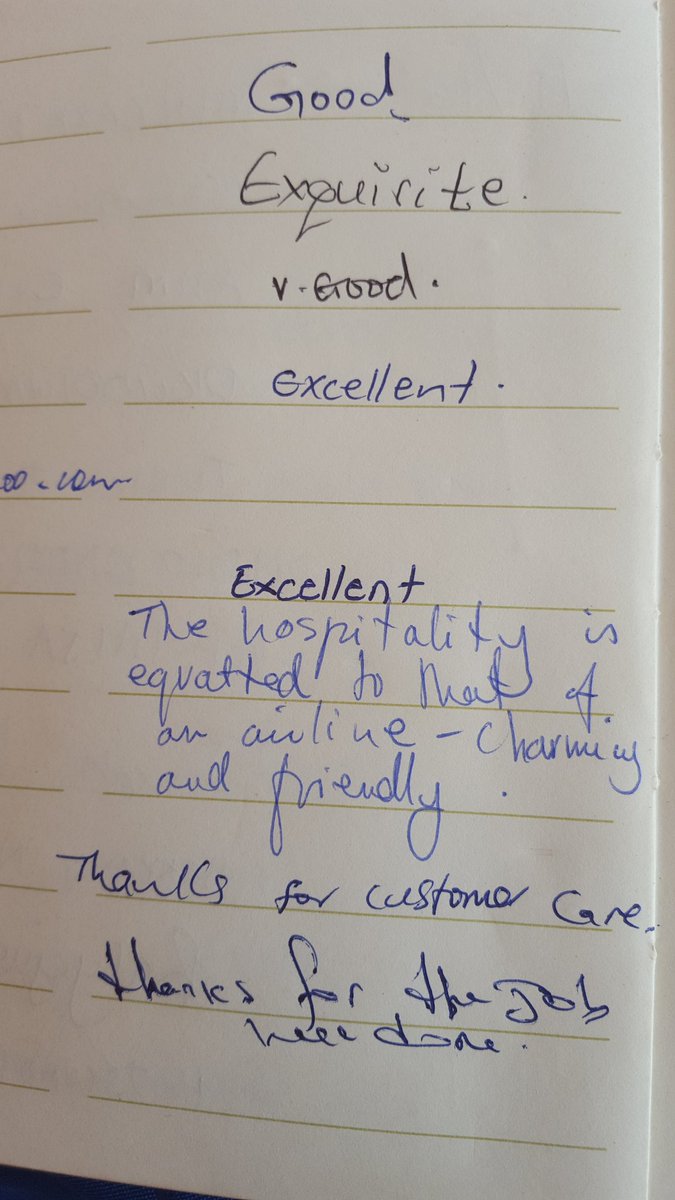 Good
Exquirite.
V. Good.
Excellent.
00.com
Excellent
The hospitality is
equatted to that of
an airline - Charming
and friendly.
Thanks for customer Care.
thanks for the Job
done.